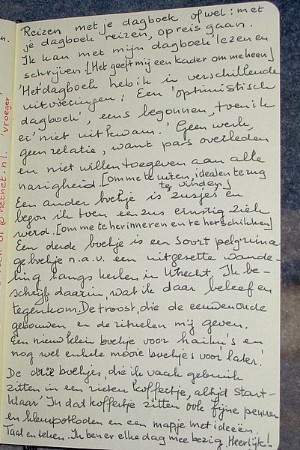 Reizen met je dagboek ofwel: met
je dagboek reizen, op reis gaan.
Ik kan met mijn dagboek lezen en
schrijven [Het geeft mij een kader om me heen]
'Het dagboek' heb ik in verschillende
uitvoeringen: Een 'optimistisch
dagboek', eens begonnen, toen ik
er niet uitkwam. Geen werk,
geen relatie, want pas overleden
en niet willen toegeven aan alle
narigheid. [om me te uiten, idealen terug
te vinden]
Een ander boekje is zusjes en
begon ik toen een zus ernstig ziek
werd. [om me te herinneren en te herschikken]
Een derde boekje is een soort pelgrims
boekje n.a.v. een uitgezette wande-
ling langs kerken in Utrecht. Ik be-
schrijf daarin, wat ik daar beleef en
tegenkom. De troost, die de eeuwenoude
gebouwen en de rituelen mij geven.
Een nieuw klein boekje voor haiku's en
nog wel enkele mooie boekjes voor later.
De drie boekjes, die ik vaak gebruik
zitten in een rieten koffertje, altijd start-
klaar. In dat koffertje zitten ook fijne pennen
en kleurpotloden en een mapje met ideeën.
Taal en teken. Ik ben er elke dag mee bezig. Heerlijk!
vroeger